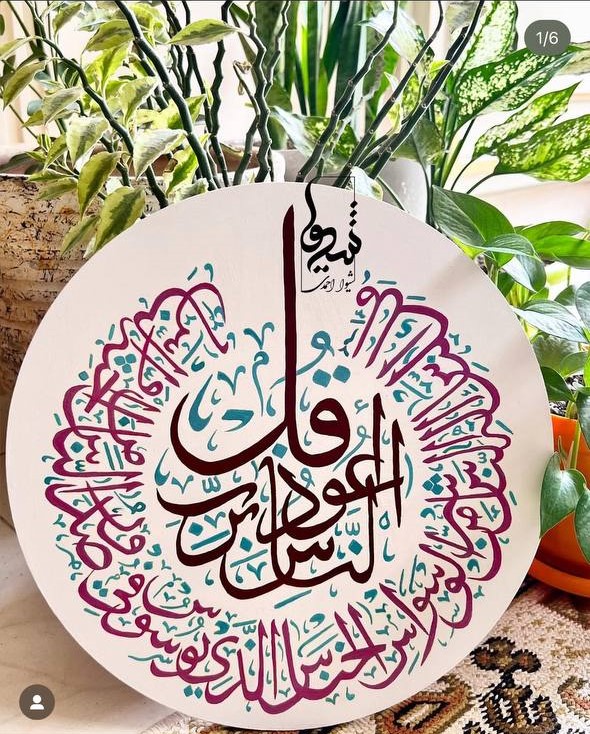 1/6
شیوا
شیوا احمدی
قل
أعوذ برب
الناس
ملك الناس إله الناس من شر الوسواس الخناس الذي يوسوس في صدور الناس من الجنة والناس